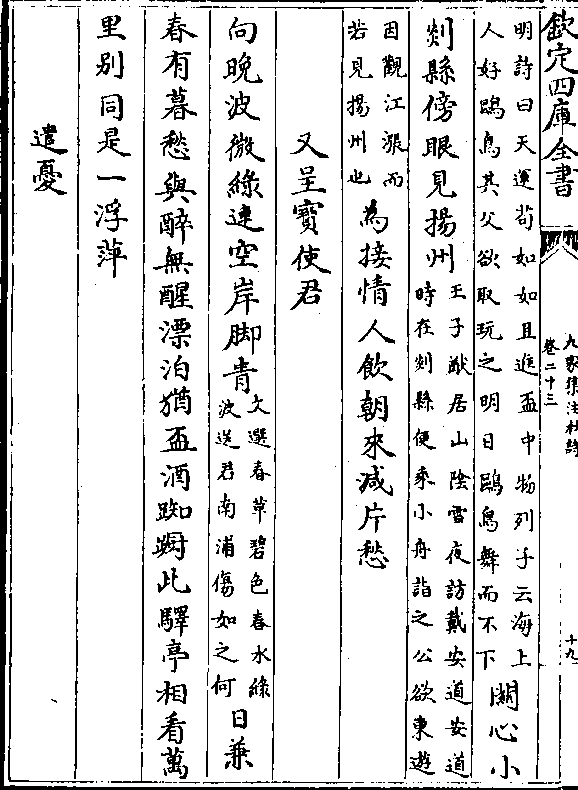 欽定四庫全書
九家集注杜詩
卷二十三
十九
明詩曰天運苟如如且進盃中物列子云海上
人好鷗鳥其父欲取玩之明日鷗鳥舞而不下
關心小
剡縣傍眼見揚州
王子猷居山陰雪夜訪戴安道安道
時在剡縣便乘小舟詣之公欲東遊
因觀江漲而
若見揚州也
為接情人飲朝來減片愁
又呈竇使君
向晚波微綠連空岸脚青
文選春草碧色春水綠
波送君南浦傷如之何
日兼
春有暮愁與醉無醒漂泊猶盃酒踟躕此驛亭相看萬
里别同是一浮萍
遣憂